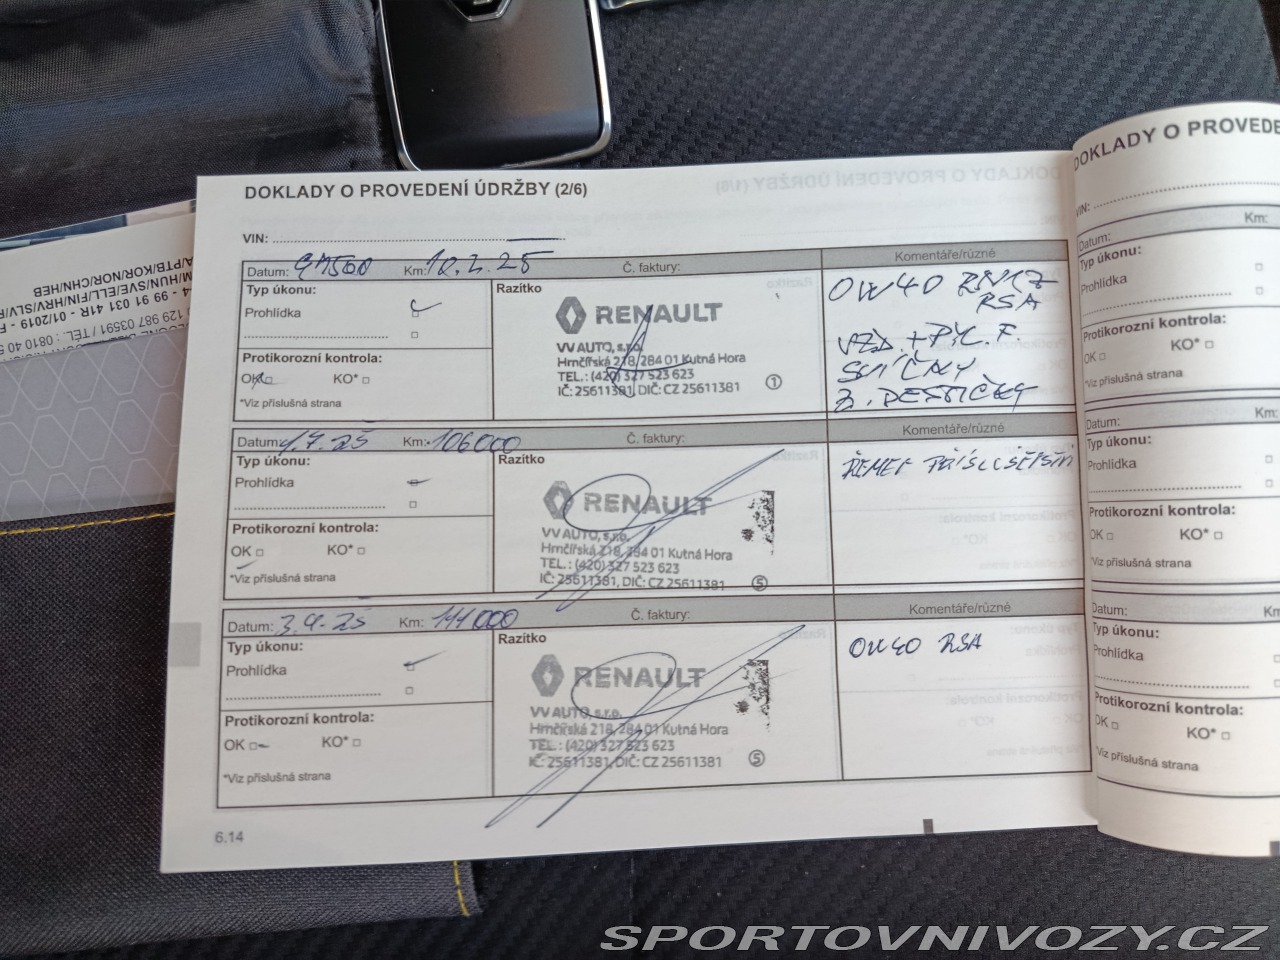 DOKLADY O PROVEDENÍ ÚDRŽBY (2/6)
VIN:
Datum: 97500 Km: 10.2.25 Č. faktury: Komentáře/různé
Typ úkonu:
Prohlídka
Protikorozní kontrola:
OK KO*
*Viz příslušná strana
Razítko
RENAULT
VV AUTO, s.r.o.
Hrnčířská 218, 284 01 Kutná Hora
TEL.: (420) 327 523 623
IČ: 25611381, DIČ: CZ 25611381 1
0W40
RSA
VZD + PYL. F
SVÍČKY
Z. DESTIČKY
Datum: Km: 106000 Č. faktury: Komentáře/různé
Typ úkonu:
Prohlídka
Protikorozní kontrola:
OK KO*
*Viz příslušná strana
Razítko
RENAULT
VV AUTO, s.r.o.
Hrnčířská 218, 284 01 Kutná Hora
TEL.: (420) 327 523 623
IČ: 25611381, DIČ: CZ 25611381 5
ŘEMEN PŘÍSLUŠENSTVÍ
Datum: 3.9.25 Km: 111000 Č. faktury: Komentáře/různé
Typ úkonu:
Prohlídka
Protikorozní kontrola:
OK KO*
*Viz příslušná strana
Razítko
RENAULT
VV AUTO, s.r.o.
Hrnčířská 218, 284 01 Kutná Hora
TEL.: (420) 327 523 623
IČ: 25611381, DIČ: CZ 25611381 5
0W40 RSA
6.14
DOKLADY O PROVEDE
VIN:
Datum: Km:
Typ úkonu:
Prohlídka
Protikorozní kontrola:
OK KO*
*Viz příslušná strana
Datum: Km:
Typ úkonu:
Prohlídka
Protikorozní kontrola:
OK KO*
*Viz příslušná strana
Datum: Km:
Typ úkonu:
Prohlídka
Protikorozní kontrola:
OK KO*
*Viz příslušná strana
SPORTOVNIVOZY.CZ